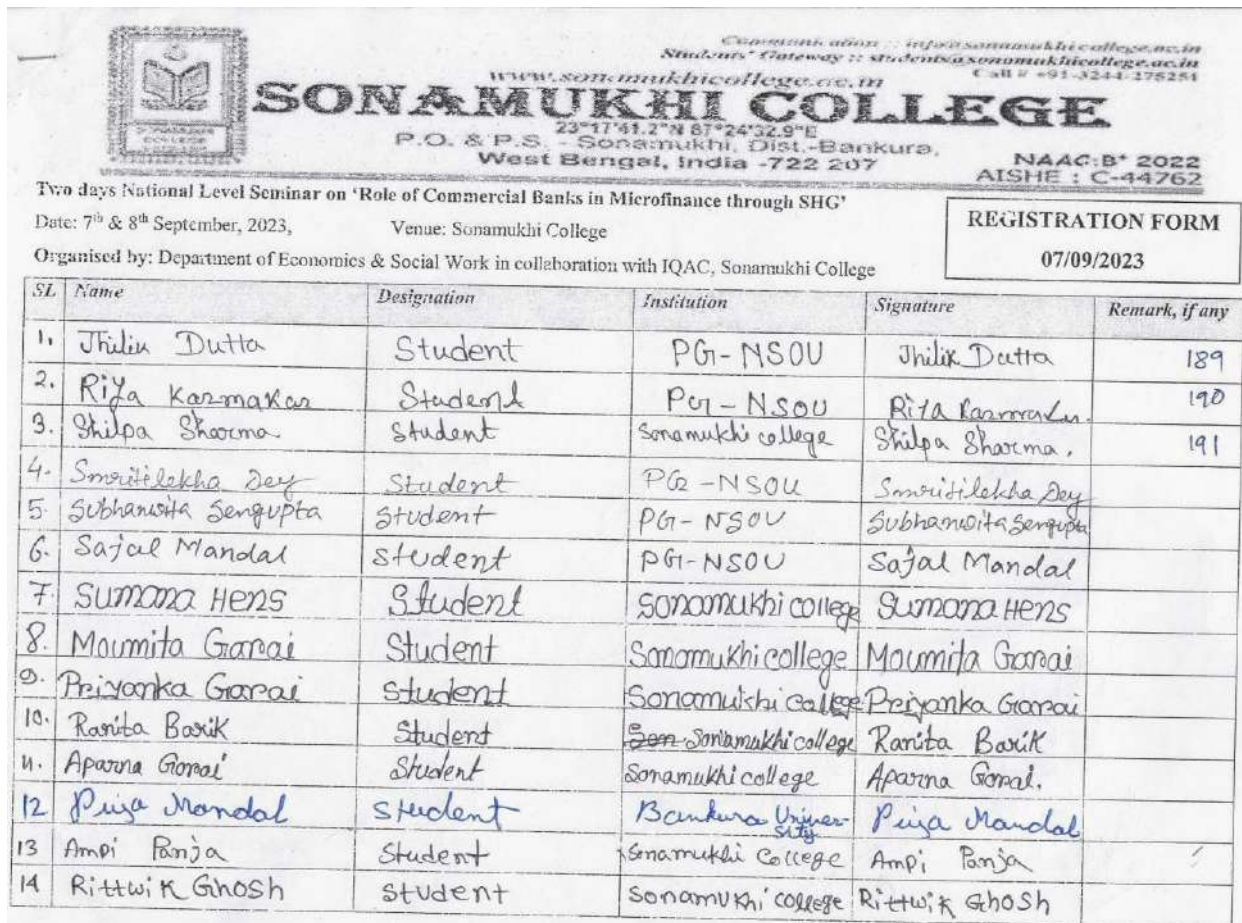 Communication :: info@sonamukhicollege.ac.in
Students' Gateway :: students@sonamukhicollege.ac.in
www.sonamukhicollege.ac.in
Call # +91-3244-275251
SONAMUKHI COLLEGE
23°17'41.2"N 87°24'32.9"E
P.O. & P.S. - Sonamukhi, Dist.-Bankura,
West Bengal, India -722 207
NAAC:B+ 2022
AISHE : C-44762
Two days National Level Seminar on ‘Role of Commercial Banks in Microfinance through SHG’
Date: 7th & 8th September, 2023, Venue: Sonamukhi College
Organised by: Department of Economics & Social Work in collaboration with IQAC, Sonamukhi College
REGISTRATION FORM
07/09/2023
SL Name Designation Institution Signature Remark, if any
1. Jhilik Dutta Student PG-NSOU Jhilik Dutta 189
2. Riya Karmakar Student PG-NSOU Riya Karmakar 190
3. Shilpa Sharma Student Sonamukhi college Shilpa Sharma. 191
4. Smritilekha Dey Student PG-NSOU Smritilekha Dey
5. Subhanwita Sengupta Student PG-NSOU Subhanwita Sengupta
6. Sajal Mandal Student PG-NSOU Sajal Mandal
7. Sumana Hens Student Sonamukhi college Sumana Hens
8. Moumita Garai Student Sonamukhi college Moumita Garai
9. Priyanka Garai Student Sonamukhi college Priyanka Garai
10. Ranita Barik Student Son Sonamukhi college Ranita Barik
11. Aparna Gorai Student Sonamukhi college Aparna Gorai.
12 Puja Mandal Student Bankura Univer-sity Puja Mandal
13 Ampi Panja Student Sonamukhi College Ampi Panja
14 Rittwik Ghosh Student Sonamukhi college Rittwik Ghosh